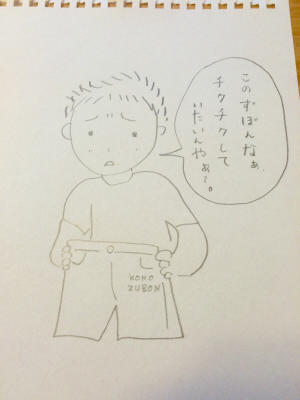 このずぼんなぁ、
チクチクして
いたいんやぁ~。
KONO
ZUBON